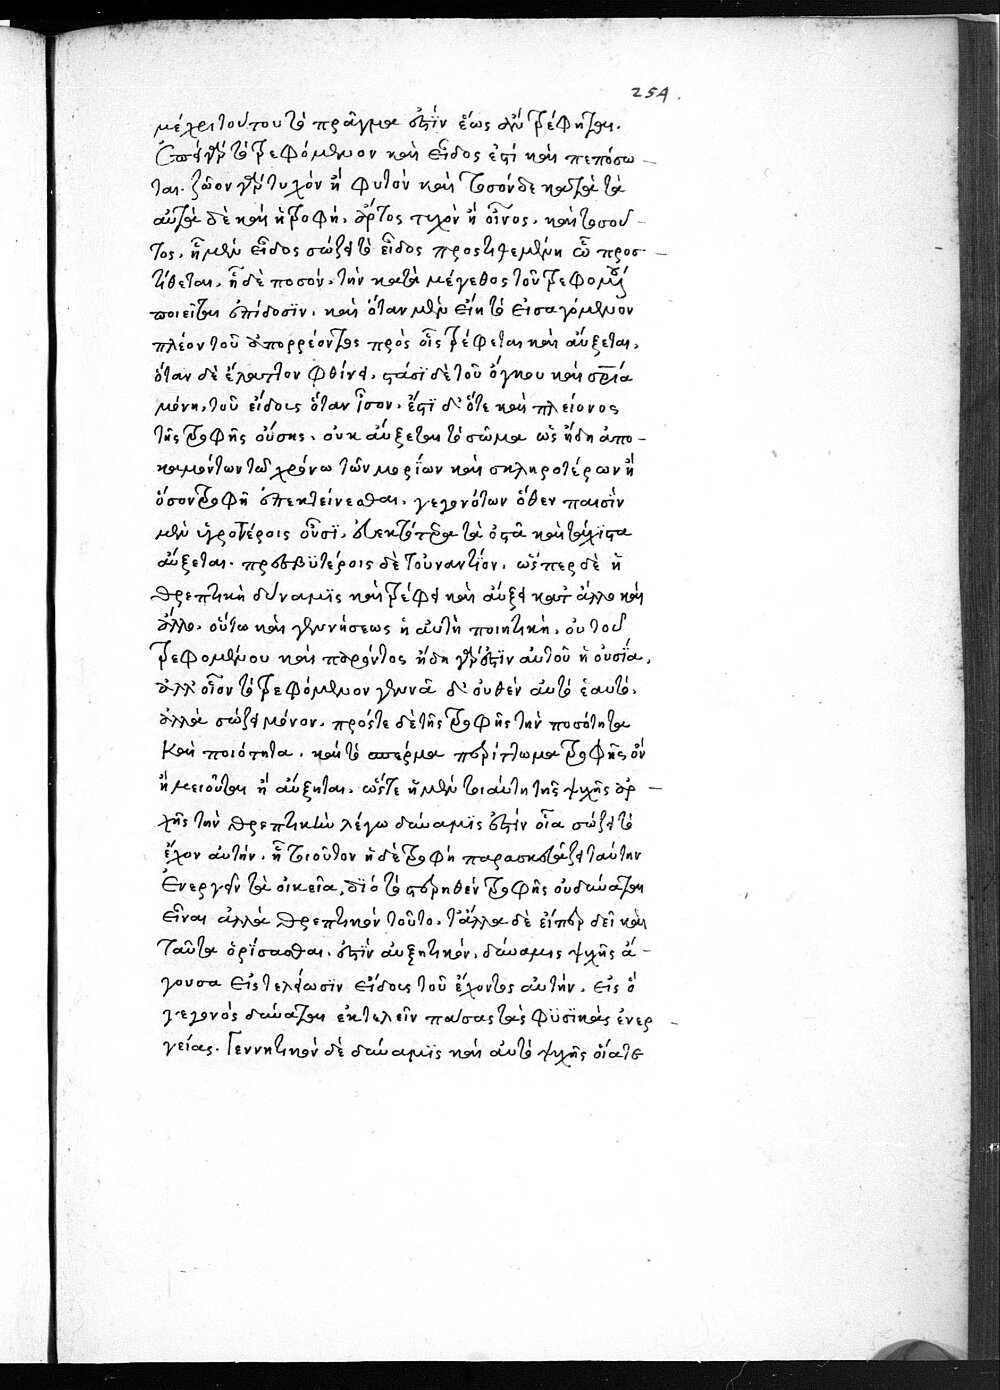 254.
μέχρι τούτου τὸ πρᾶγμα ἐστὶν ἕως ἂν τρέφηται.
ἐπεὶ γὰρ τὸ τρεφόμενον καὶ εἶδος ἐστὶ καὶ πεπόσω-
ται. ζῶον γὰρ τυχὸν ἢ φυτὸν καὶ τοσόνδε κατὰ τὰ
αὐτὰ δὲ καὶ ἡ τροφή. ἄρτος τυχὸν ἢ οἶνος. καὶ τοσοῦ-
τος, ἧ μὲν εἶδος σώζει τὸ εἶδος προστιθεμένη ὧ προσ-
τίθεται. ἧ δὲ ποσόν. τὴν κατὰ μέγεθος τοῦ τρεφομένου
ποιεῖται ἐπίδοσϊν. καὶ ὅταν μὲν εἴη τὸ εἰσαγόμενον
πλέον τοῦ ἀπορρέοντος πρὸς οἷς τρέφεται καὶ αὔξεται.
ὅταν δὲ ἔλαττον φθίνει. στάσϊ δὲ τοῦ ὄγκου καὶ
μόνη. τοῦ εἴδους ὅταν ἶσον. ἔστϊ δ' ὅτε καὶ πλείονος
τῆς τροφῆς οὔσης. οὐκ αὔξεται τὸ σῶμα ὡς ἤδη ἀπο-
καμόντων τῶ χρόνω τῶν μορϊων καὶ σκληροτέρων ἢ
ὅσον τροφῆ ἐπεκτείνεσθαι. γεγονότων ὅθεν παισὶν
μὲν ὑγροτέροις οὖσϊ. τὰ ὀστᾶ καὶ τάχϊστα
αὔξεται. πρεσβϋτέροις δὲ τοὐναντϊον. ὥσπερ δὲ ἡ
θρεπτικὴ δύναμϊς καὶ τρέφει καὶ αὔξει κατ' ἄλλο καὶ
ἄλλο. οὕτω καὶ γεννήσεως ἡ αὐτὴ ποιητικὴ. οὐ τοῦ
τρεφομένου καὶ παρόντος ἤδη γάρ ἐστϊν αὐτοῦ ἡ οὐσία.
ἀλλ' οἷον τὸ τρεφόμενον γεννᾶ δ' οὐθὲν αὐτὸ ἑαυτό.
ἀλλὰ σώζει μόνον. πρόσγε δὲ τῆς τροφῆς τὴν ποσότητα
καὶ ποιότητα. καὶ τὸ σπέρμα περίττωμα τροφῆς ὂν
ἢ μειοῦται ἢ αὔξηται. ὥστε ἡ μὲν τοιαύτη τῆς ψυχῆς ἀρ-
χῆς τὴν θρεπτικὴν λέγω δύναμϊς ἐστὶν οἵα σώζει τὸ
ἔχον αὐτήν. ἧ τοιοῦτον ἡ δὲ τροφὴ παρασκευάζει ταύτην
ἐνεργεῖν τὰ οἰκεῖα. διὸ τὸ στερηθὲν τροφῆς οὐ δύναται
εἶναι ἀλλὰ θρεπτικὸν τοῦτο. τἆλλα δὲ εἴπερ δεῖ καὶ
ταῦτα ὁρίσασθαι. ἐστὶν αὐξητικόν. δύναμις ψυχῆς ἄ-
γουσα εἰς τελείωσϊν εἴδους τοῦ ἔχοντος αὐτήν. εἰς ὃ
γεγονὸς δύναται ἐκτελεῖν πάσας τὰς φϋσϊκὰς ἐνερ-
γείας. Γεννητικὸν δὲ δύναμϊς καὶ αὐτὸ ψυχῆς οἵα τε